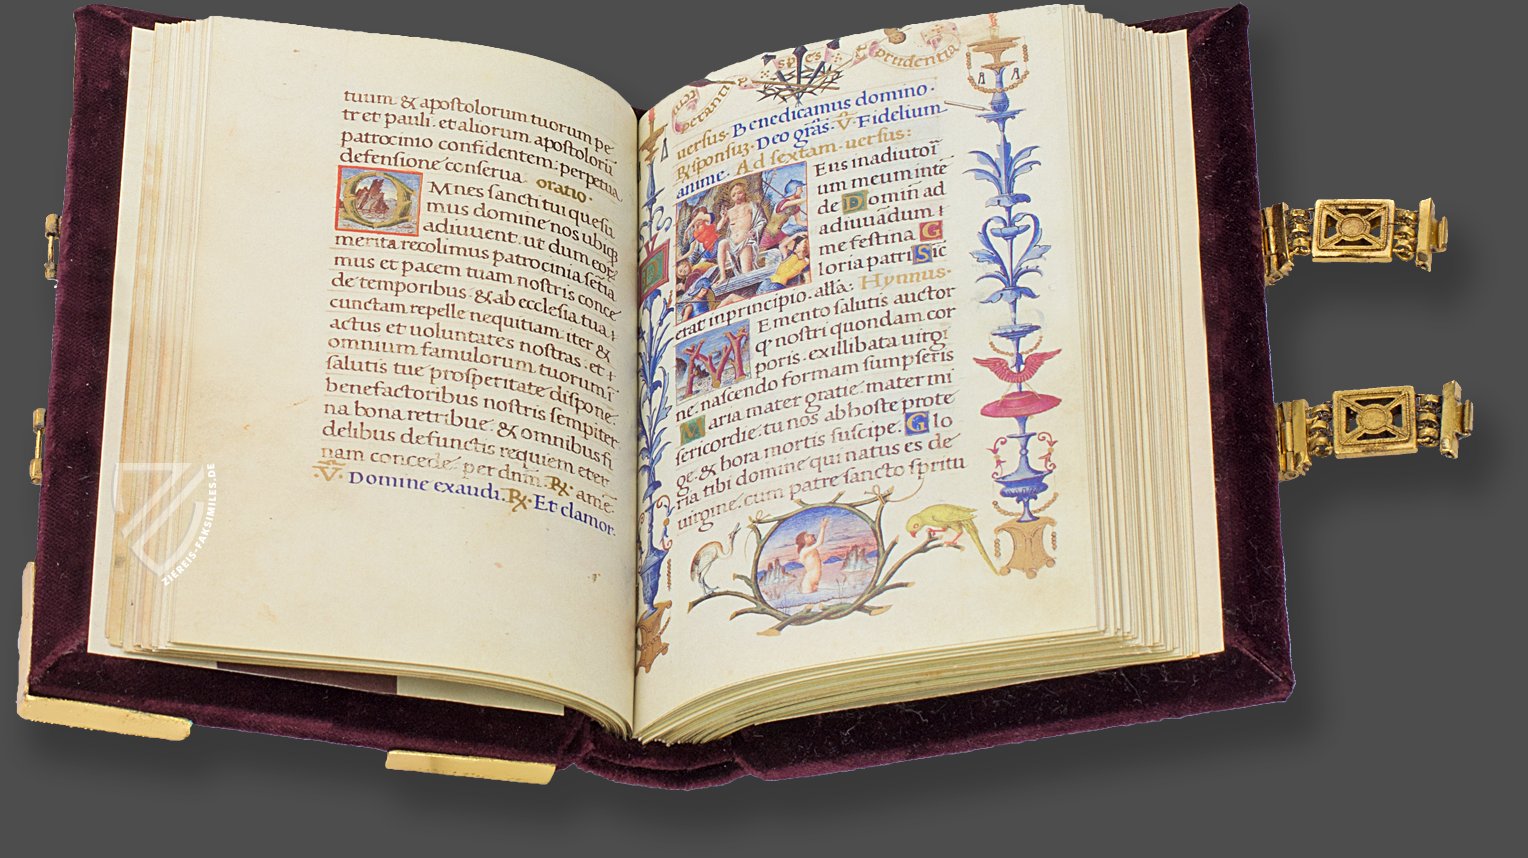 tuum & apostolorum tuorum pe
tri et pauli. et aliorum apostolorũ
patrocinio confidentem: perpetua
defensione conserua. oratio.
OMnes sancti tui quesu
mus domine nos ubiqȝ
adiuuent. ut dum eorȝ
merita recolimus patrocinia sẽtia
mus et pacem tuam nostris conce
de temporibus. & ab ecclesia tua
cunctam repelle nequitiam: iter &
actus et uoluntates nostras. et
omnium famulorum tuorum ĩ
salutis tue prosperitate dispone.
benefactoribus nostris sempiter
na bona retribue. & omnibus fi
delibus defunctis requiem eter
nam concede. per dnm. R. ame.
V. Domine exaudi. R. Et clamor.
spes
prudentia
uersus. Benedicamus domino.
Responsuȝ. Deo grãs. V. Fidelium
anime. Ad sextam. uersus:
Eus in adiutoĩ
um meum inte
de Domiñ ad
adiuuãdum
me festina G
loria patri Sic
erat in principio. alla. Hymnus.
MEmento salutis auctor
qȝ nostri quondam cor
poris. ex illibata uirgi
ne. nascendo formam sumpseris
Maria mater gratie. mater mi
sericordie. tu nos ab hoste prote
ge. & hora mortis suscipe. Glo
ria tibi domine qui natus es de
uirgine. cum patre sancto spritu
ZIEREIS-FAKSIMILES.DE